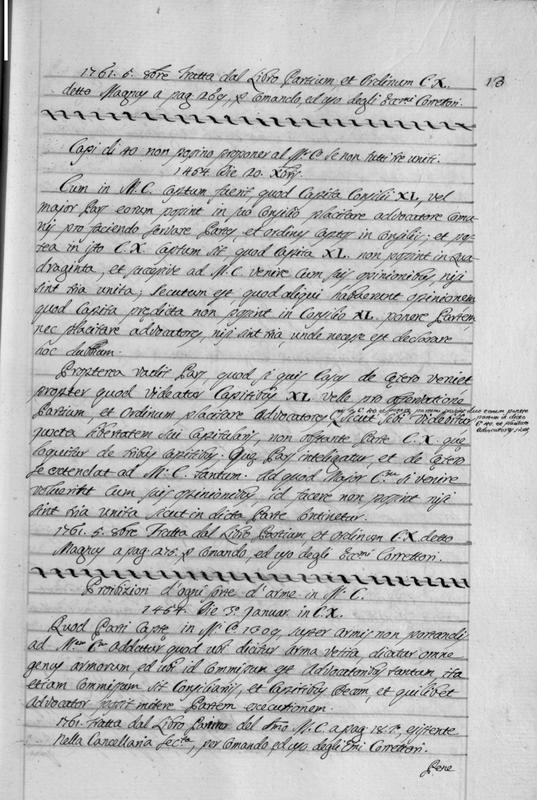 13
1761. 5. 8bre Tratta dal Libro Partium et Ordinum C.X.
detto Magnus a pag 269, p Comando, ed uso degli Eccmi Correttori.
Capi di 40 non possino proponer al M.r C.o se non tutti tre uniti.
1454. Die 20. Xbris
Cum in M. C. captum fuerit, quod Capita Consilii XL, vel
major Pars eorum possint in suo Consilio placitare advocatore Comu-
nis pro faciendo servare Partes et ordines captos in Consiliis; et pos-
tea in isto C. X. captum sit quod Capita XL. non possint in Qua-
draginta, et successive ad M. C. venire cum suis opinionibus, nisi
sint tria unita; secutum est, quod aliqui habuerunt opinionem
quod Capita predicta non possint in Consilio XL. ponere Partem
nec placitare advocatores, nisi sint tria, unde necesse est declarare
hoc dubium.
Propterea vadit Pars, quod si quis casus de cetero veniet
propter quod videatur Capitibus XL velle pro observatione
Partium et Ordinum placitare advocatores, sicuti sibi videbitur
juxta libertatem sui Capitularis, non obstante Parte C. X. quæ
loquitur de tribus Capitibus. Quæ Pars intelligatur, et de cetero
se extendat ad M. C. tantum. Ad quod Major C. si venire
voluerint cum suis opinionibus, id facere non possint nisi
sint tria unita sicut in dicta Parte continetur.
1761. 5. 8bre Tratta dal Libro Partium et ordinum C.X. detto
Magnus a pag. 275. p Comando, ed uso degli Eccmi Correttori.
Proibizion d'ogni sorte d'arme in M.r C.
1457. Die 5. Januar. in C.X.
Quod Parti Captæ in M.r C. 1309, super armis non portandis
ad M.us C.m addatur quod ubi dicitur arma vetita dicatur omne
genus armorum, ed ubi id commissum est Advocatoribus tantum, ita
etiam commissum sit Consiliariis, et Capitibus de eam, et quilibet
advocator possit mittere Partem executionem.
1761. Tratta dal Libro del M. C. a pag. 187, esistente
nella Cancellaria Sec.ta, per Comando, ed uso degli Emi Correttori.
Pene